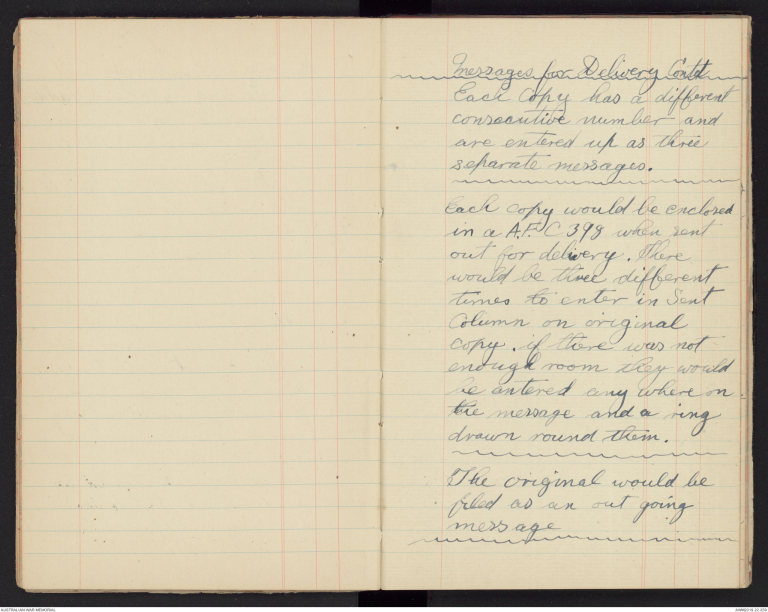 Messages for Delivery Contd
Each Copy has a different
consecutive number and
are entered up as three
separate messages.
Each copy would be enclosed
in a A.F. C 398 when sent
out for delivery. There
would be three different
times to enter in Sent
Column on original
copy. if there was not
enough room they would
be entered any where on
the message and a ring
drawn round them.
The original would be
filed as an out going
message
AUSTRALIAN WAR MEMORIAL